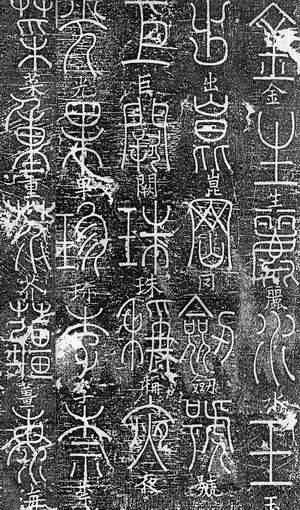 金金生生麗麗水水玉玉
出出崑崑岡岡劒劒號號
巨巨闕闕珠珠稱稱夜夜
光光果果珍珍李李柰柰
菜菜重重芥芥薑薑海海